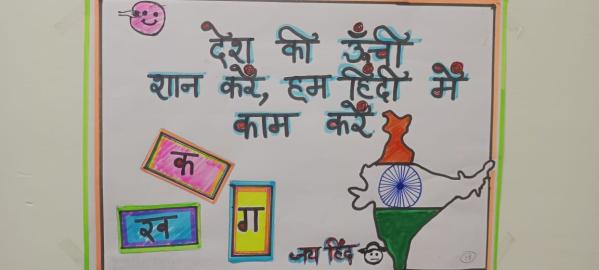 देश की ऊँची
शान करें, हम हिंदी में
काम करें
क
ख
ग
जय हिंद